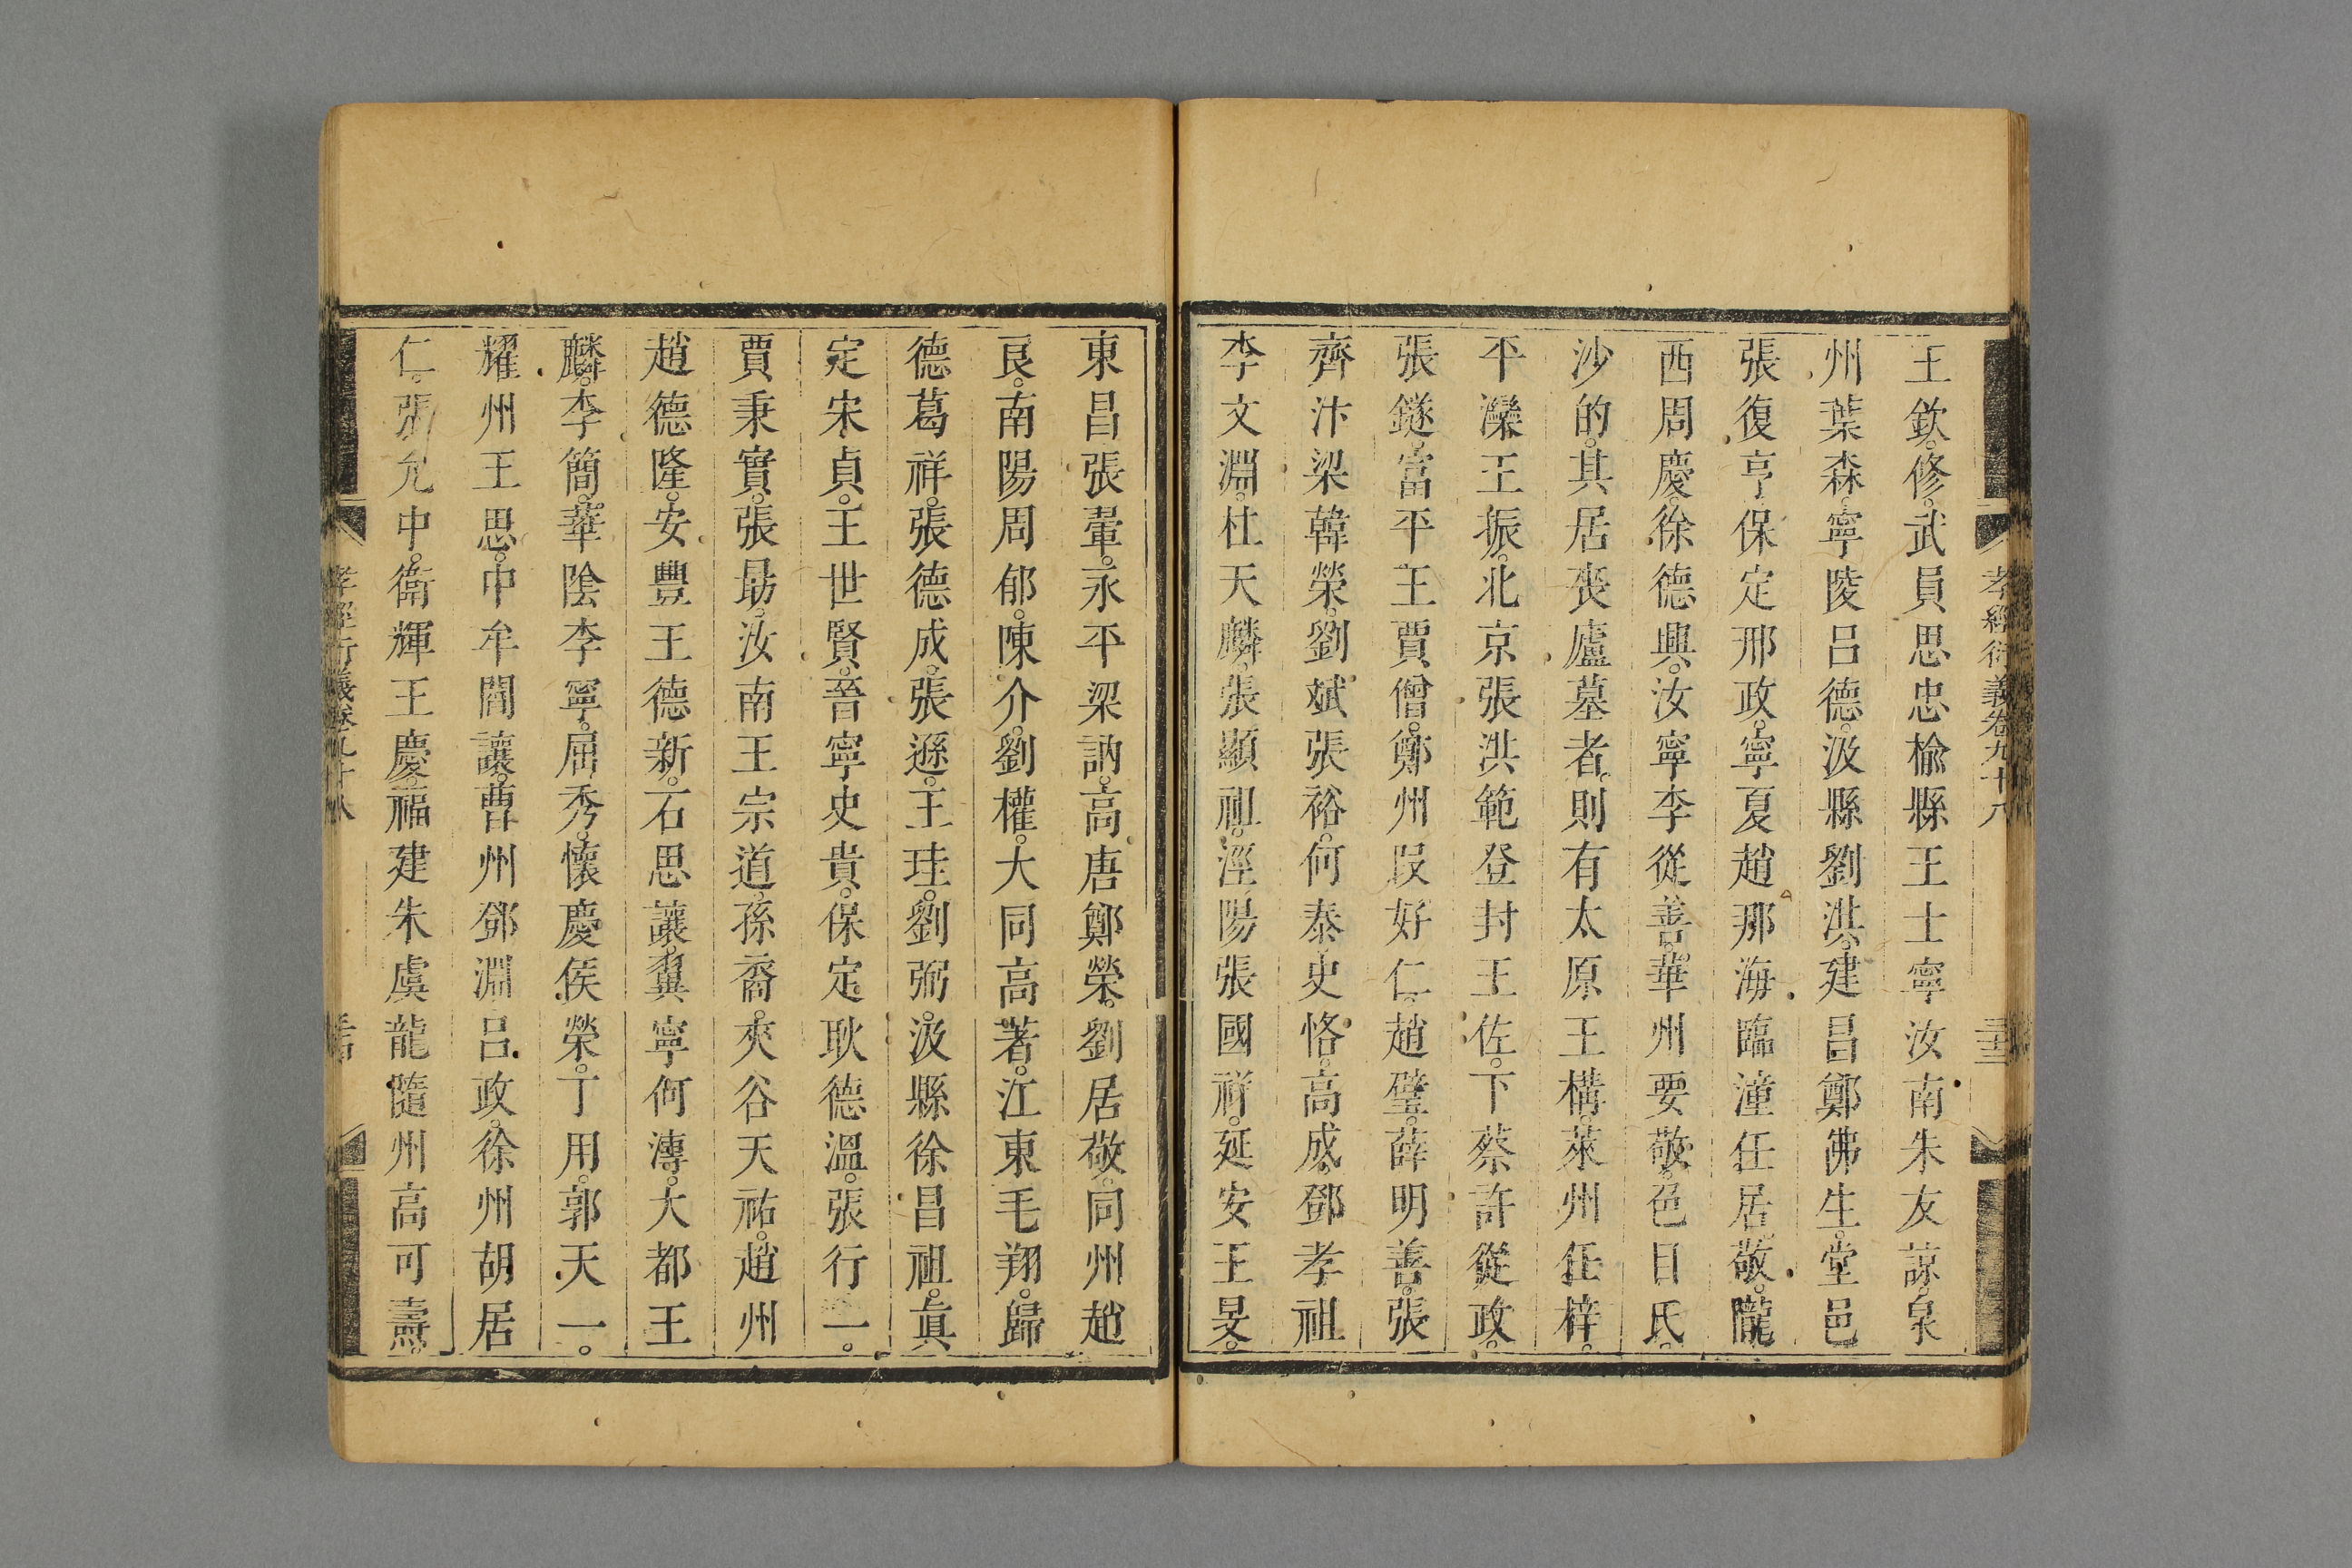 孝經衍義卷九十八
王欽。修。武員思忠榆縣王士寧汝南朱友諒。泉
州葉森。寧陵呂德。汲縣劉洪。建昌鄭佛生。堂邑
張復亨。保定邢政。寧夏趙那海。臨潼任居敬。隴
西周慶。徐德興。汝寧李從善。華州要敬。色目氏。
沙的。其居喪廬墓者。則有太原王構。萊州任梓。
平灤王振。北京張洪範登封王佐。下蔡許從政。
張鐩。富平王賈僧。鄭州段好仁。趙璧。薛明善。張
齊汴梁韓榮。劉斌張裕。何泰。史恪高成。鄧孝祖
李文淵。杜天麟。張顯祖。涇陽張國祥。延安王旻。
東昌張翬。永平梁訥。高唐鄭榮。劉居敬。同州趙
良。南陽周郁。陳介。劉權。大同高著。江東毛翔。歸
德葛祥。張德成。張遜。王珪。劉弼。汲縣徐昌祖。真
定宋貞。王世賢。晉寧史貴。保定耿德溫。張行一。
賈秉實。張勗。汝南王宗道。孫裔。夾谷天祐。趙州
趙德隆。安豐王德新。石思讓。冀寧何溥。大都王
麟。李簡。華陰李寧。屈秀。懷慶侯榮。丁用。郭天一。
耀州王思。中牟閻讓。曹州鄧淵。呂政。徐州胡居
仁。張允中。衛輝王慶。福建朱虞龍隨州高可燾。
孝經衍義卷九十八